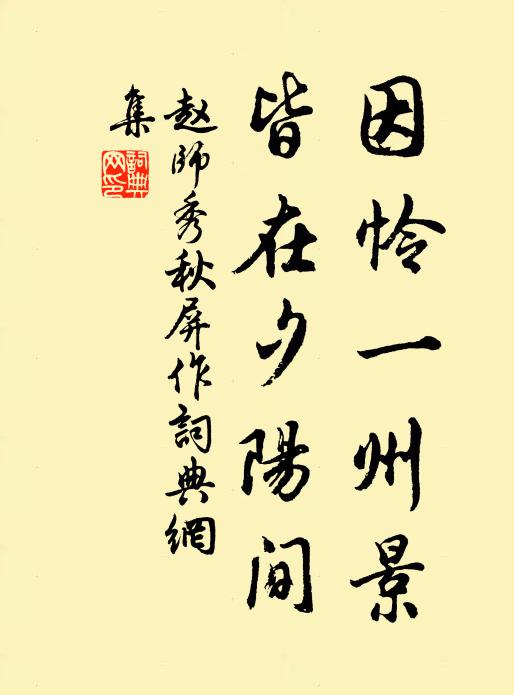 因怜一州景
皆在夕陽间
赵师秀秋屏作詞典網
集
詞典
网印